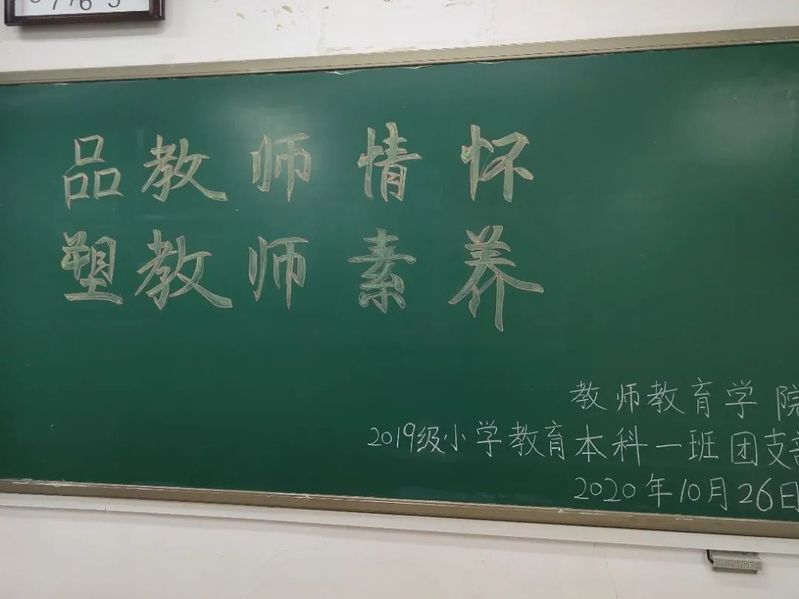 品教师情怀
塑教师素养
教师教育学院
2019级小学教育本科一班团支部
2020年10月26日